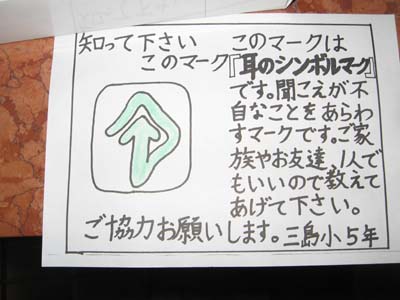 知って下さい
このマーク
このマークは
『耳のシンボルマーク』
です。聞こえが不
自なことをあらわ
すマークです。ご家
族やお友達、1人で
もいいので教えて
あげて下さい。
ご協力お願いします。三島小5年